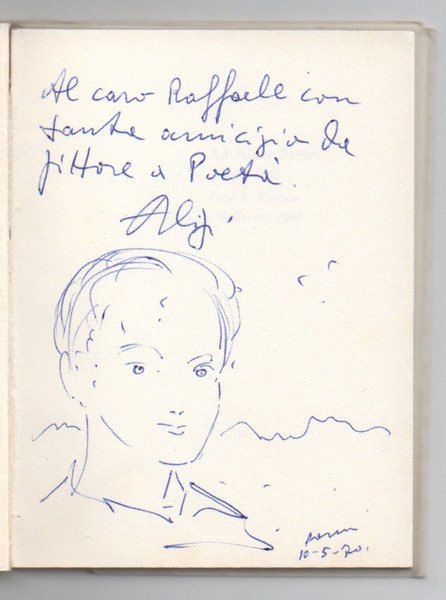 Al caro Raffaele con
tanta amicizia da
pittore a Poeta.
Aligi.
Roma
10-5-70.